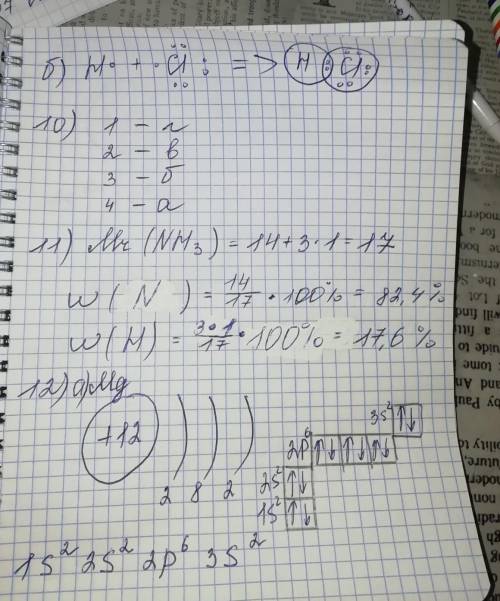 б) H· + ·Cl: => H :Cl:
10) 1 – г
2 – в
3 – б
4 – а
11) Mr (NH₃) = 14+3·1=17
w(N) = 14/17 · 100% = 82,4%
w(H) = 3·1/17 · 100% = 17,6%
12) а) Mg
+12 ) ) )
2 8 2
3s² ↑↓
2p⁶ ↑↓ ↑↓ ↑↓
2s² ↑↓
1s² ↑↓
1s² 2s² 2p⁶ 3s²